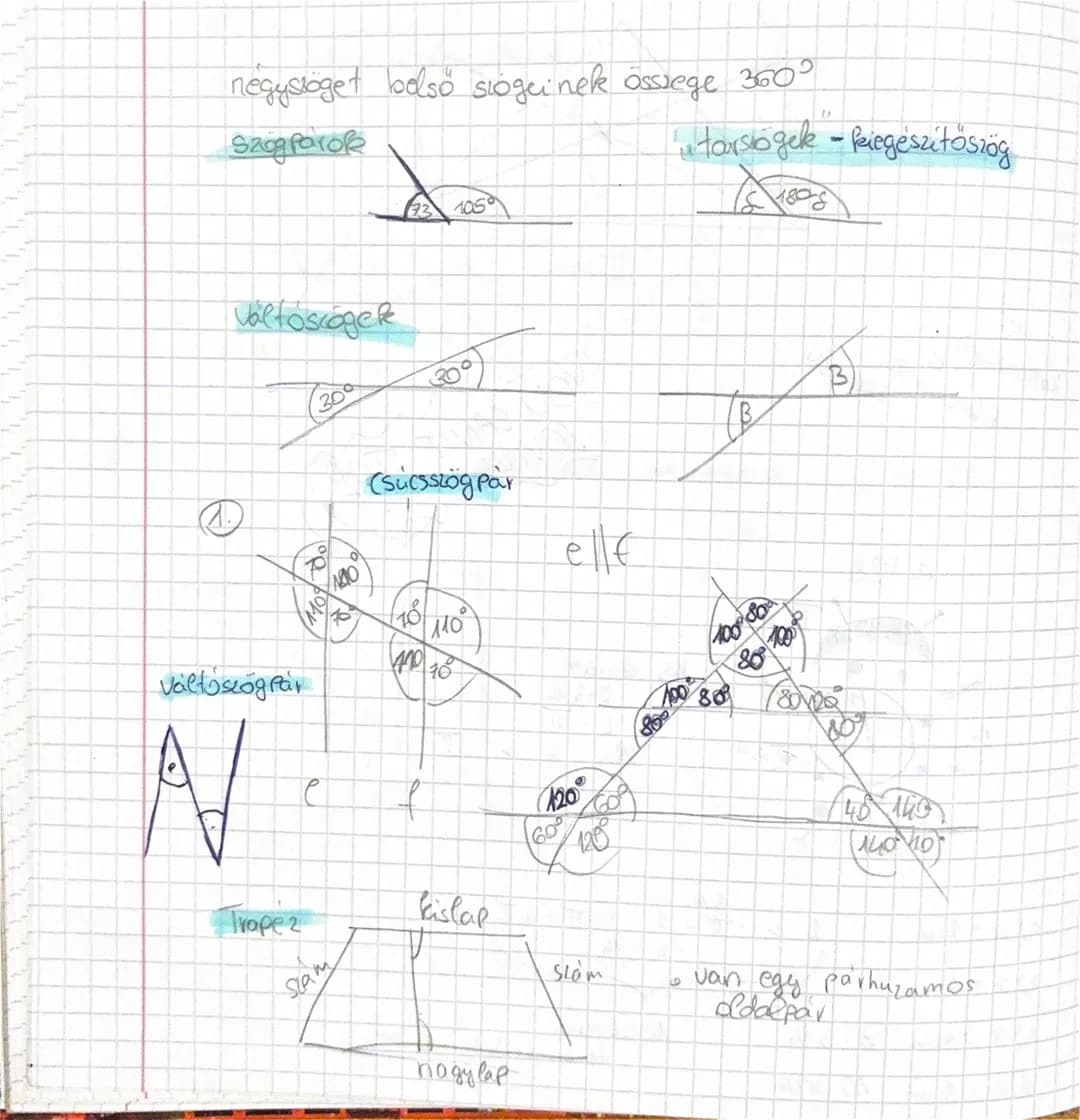 négyszöget belső szögeinek összege 360°
Szögpárok
"társzögek" - kiegészítőszög
73 105°
δ 180-δ
Váltószögek
30° 30°
β β
Csúcsszögpár
1.
e||f
70° 110°
110° 70°
70° 110°
110 70°
80°
100° 100°
80°
100° 80° 80 120°
80° 80°
Váltószögpár
e f
120° 60° 40° 140
60° 120° 140° 40°
Trapéz
kislap
szám szám
• van egy párhuzamos
oldalpár
nagylap